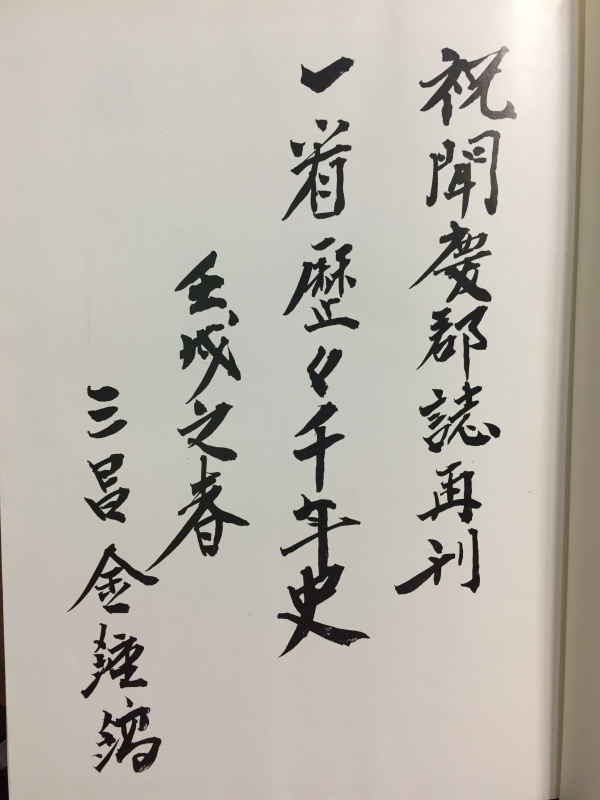 祝聞慶郡誌再刊
一看歷々千年史
壬戌之春
三昌 金鍾